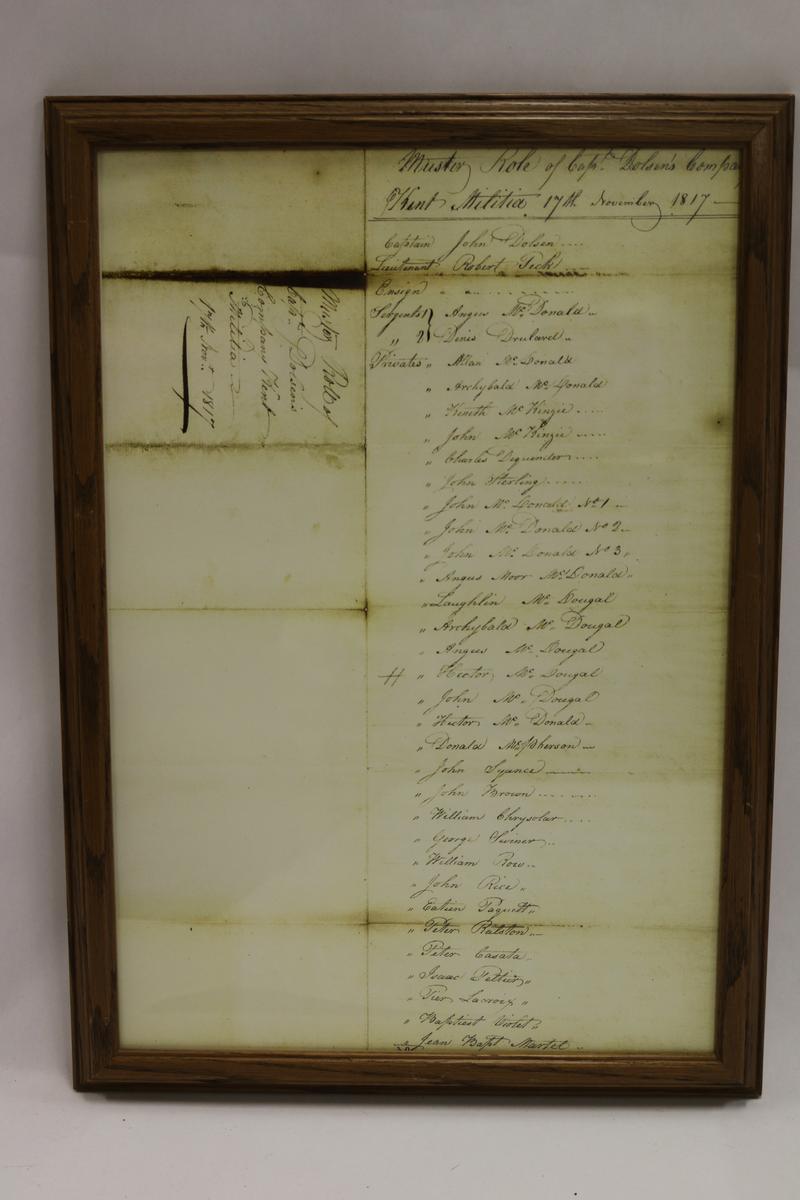 Muster Role of Capt. Dolsen's Compa
Kent Militia 17th November 1817
Captain John Dolsen
Lieutenant Robert Peck
Ensign
Sergents 1 Angus Mc Donald
" 2 Denis Drulard
Privates " Allan Mc Donald
" Archybald Mc Donald
" Keneth Mc Kinzie
" John Mc Kinzie
" Charles Dequinder
" John Sterling
" John Mc Donald No 1
" John Mc Donald No 2
" John Mc Donald No 3
" Angus Moor Mc Donald
" Laughlin Mc Dougal
" Archybald Mc Dougal
" Angus Mc Dougal
# " Hector Mc Dougal
" John Mc Dougal
" Hector Mc Donald
" Donald McPherson
" John Syance
" John Brown
" William Chrysolar
" George Swiner
" William Row
" John Rice
" Eatien Paquett
" Peter Ralston
" Peter Casata
" Isaac Peltier
" Pier Lacroix
" Baptiest Violet
" Jean Bapt Martel
Muster Roll of
Capt. Dolsen's
Company Kent
Militia
17th Novr. 1817